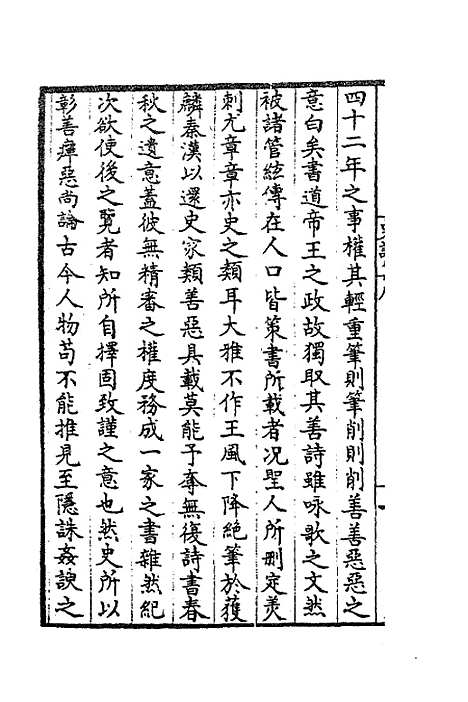 四十二年之事權其輕重筆則筆削則削善善惡惡之
意白矣書道帝王之政故獨取其善詩雖咏歌之文然
被諸管絃傳在人口皆策書所載者況聖人所刪定美
刺尤章章亦史之類耳大雅不作王風下降絕筆於獲
麟秦漢以還史家類善惡具載莫能予奪無復詩書春
秋之遺意蓋彼無精審之權度務成一家之書雜然紀
次欲使後之覽者知所自擇固致謹之意也然史所以
彰善癉惡尚論古今人物苟不能推見至隱誅姦諛之